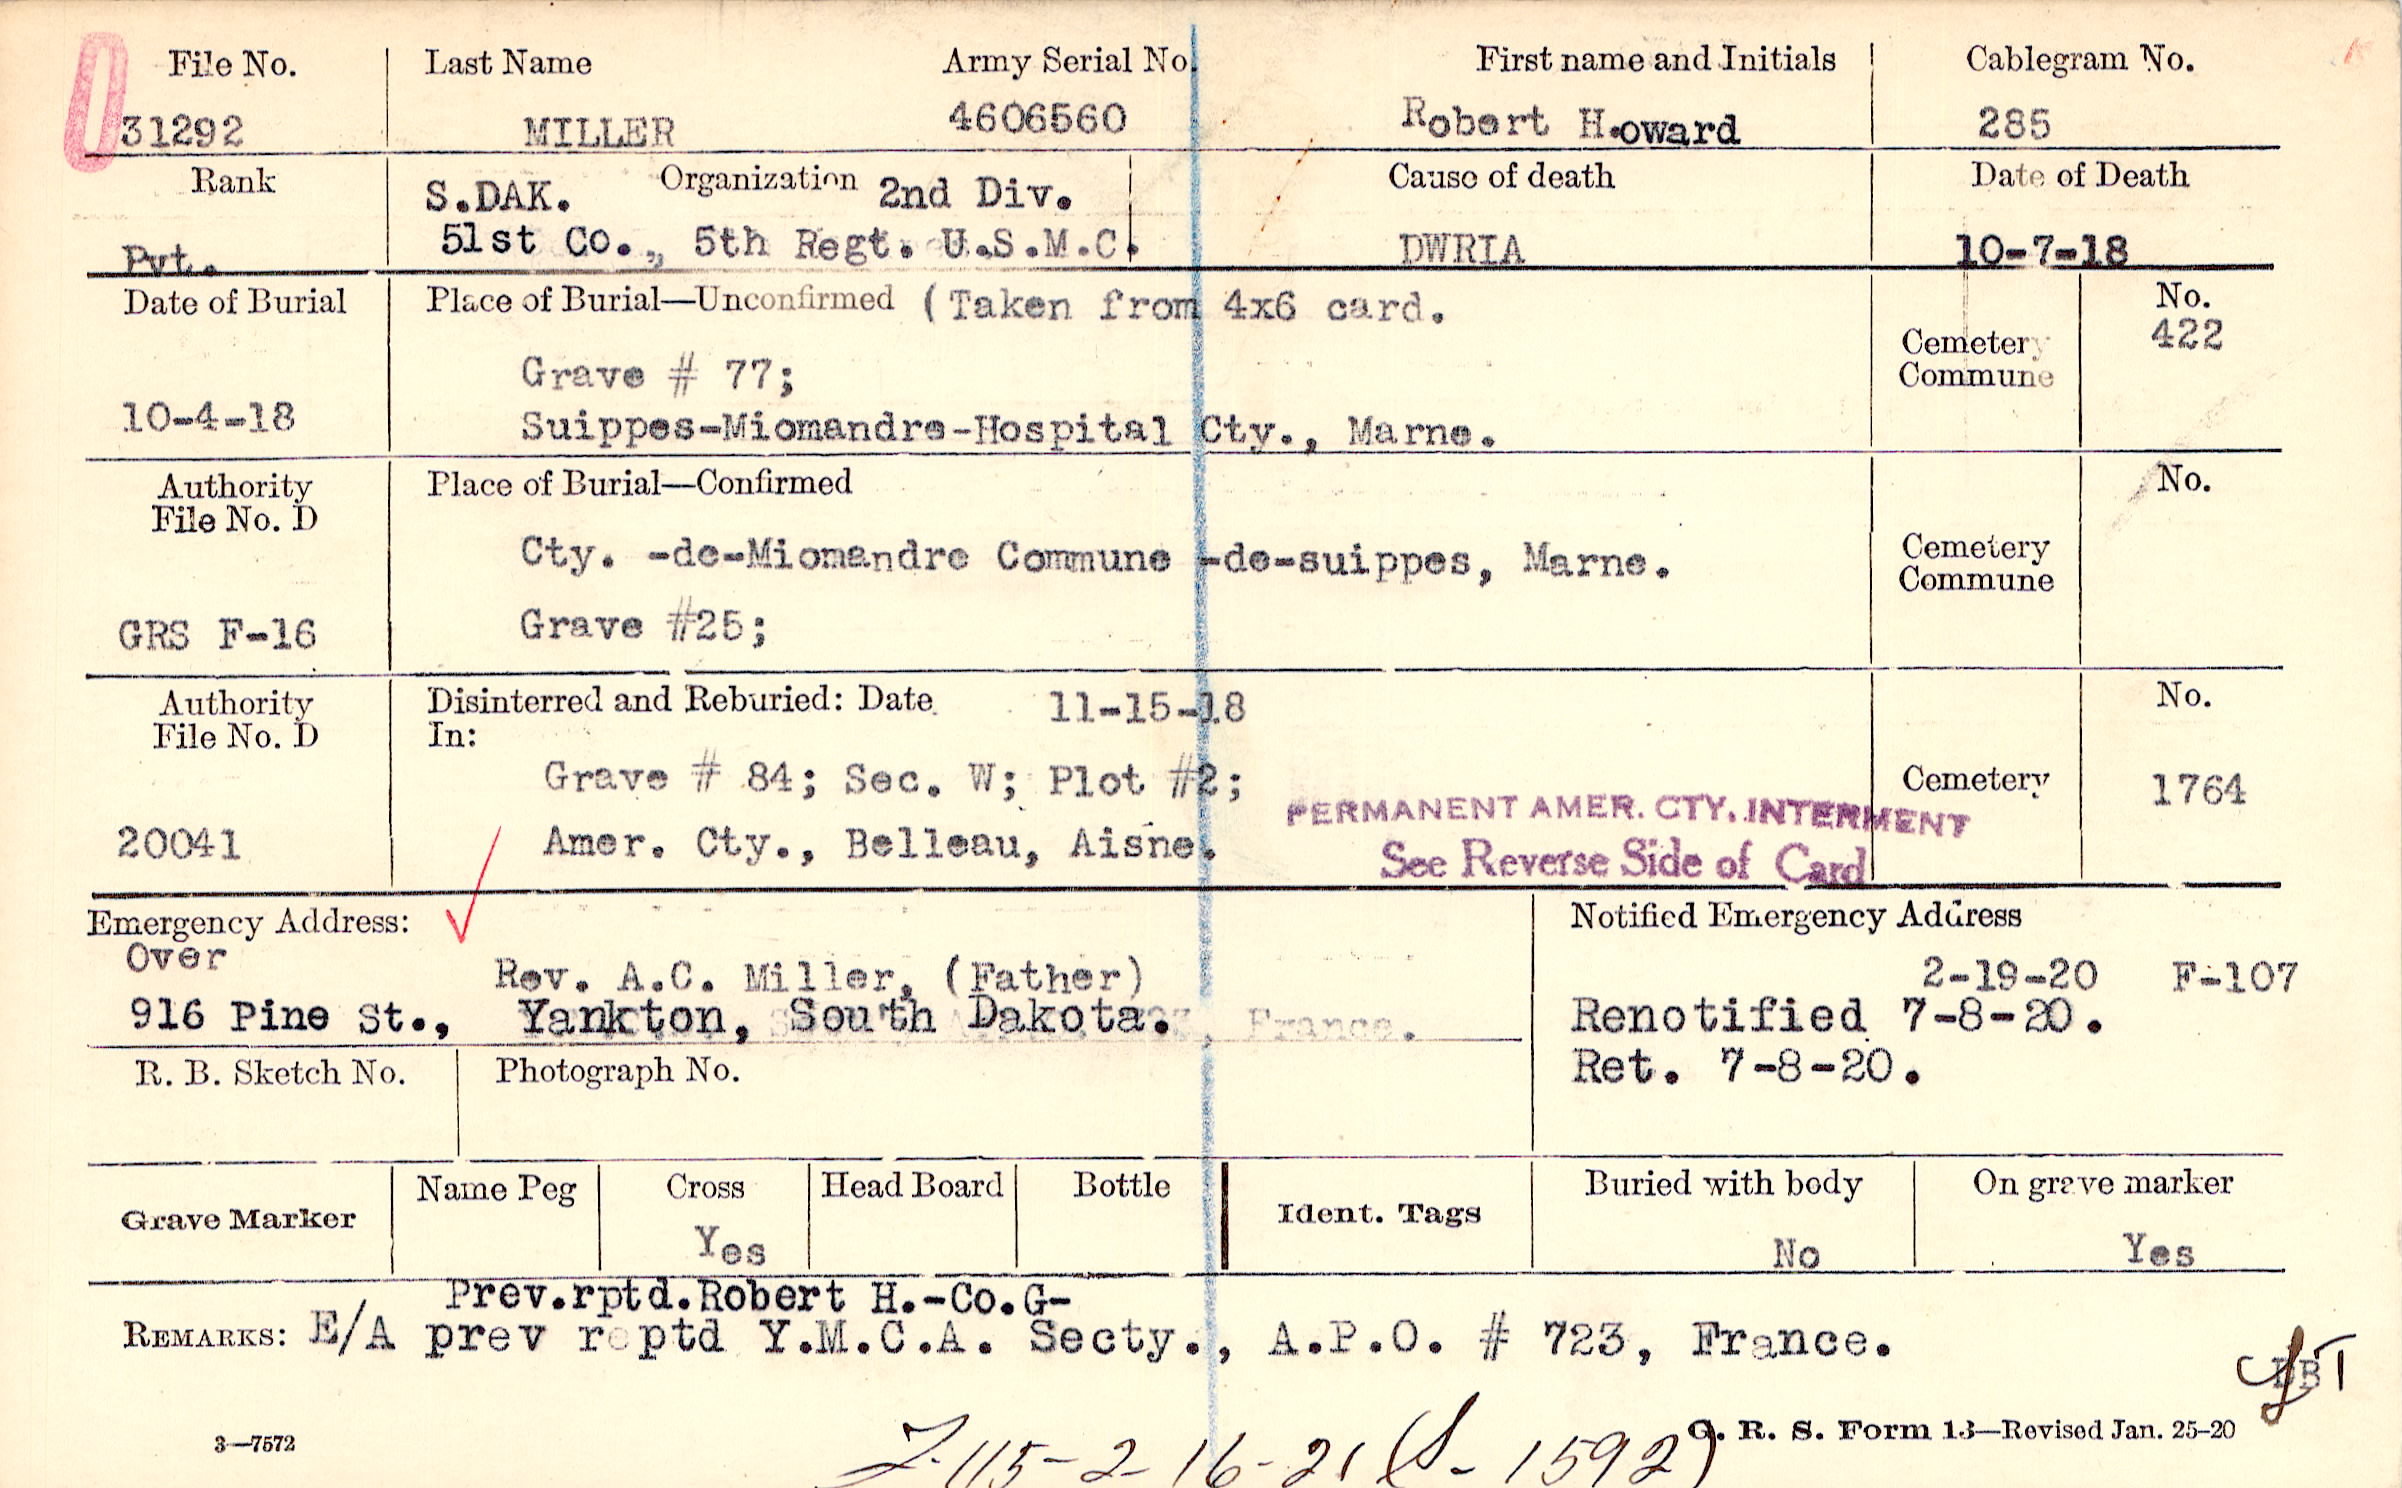 File No. Last Name Army Serial No. First name and Initials Cablegram No.
31292 MILLER 4606560 Robert H.oward 285
Rank S.DAK. Organization 2nd Div. Cause of death Date of Death
Pvt. 51st Co., 5th Regt. U.S.M.C. DWRIA 10-7-18
Date of Burial Place of Burial—Unconfirmed (Taken from 4x6 card. No.
422
Cemetery
Commune
Grave # 77;
10-4-18 Suippes-Miomandre-Hospital Cty., Marne.
Authority Place of Burial—Confirmed No.
File No. D
Cty. -de-Miomandre Commune -de-suippes, Marne. Cemetery
Commune
GRS F-16 Grave #25;
Authority Disinterred and Reburied: Date 11-15-18 No.
File No. D In:
Grave # 84; Sec. W; Plot #2; Cemetery 1764
PERMANENT AMER. CTY. INTERMENT
20041 Amer. Cty., Belleau, Aisne. See Reverse Side of Card
Emergency Address: Notified Emergency Address
Over Rev. A.C. Miller, (Father) 2-19-20 F-107
916 Pine St., Yankton, South Dakota. France. Renotified 7-8-20.
R. B. Sketch No. Photograph No. Ret. 7-8-20.
Grave Marker Name Peg Cross Head Board Bottle Ident. Tags Buried with body On grave marker
Yes No Yes
Prev.rptd.Robert H.-Co.G-
REMARKS: E/A prev reptd Y.M.C.A. Secty., A.P.O. # 723, France.
3—7572 G. R. S. Form 13—Revised Jan. 25-20
115-2-16-21 (S-1592)